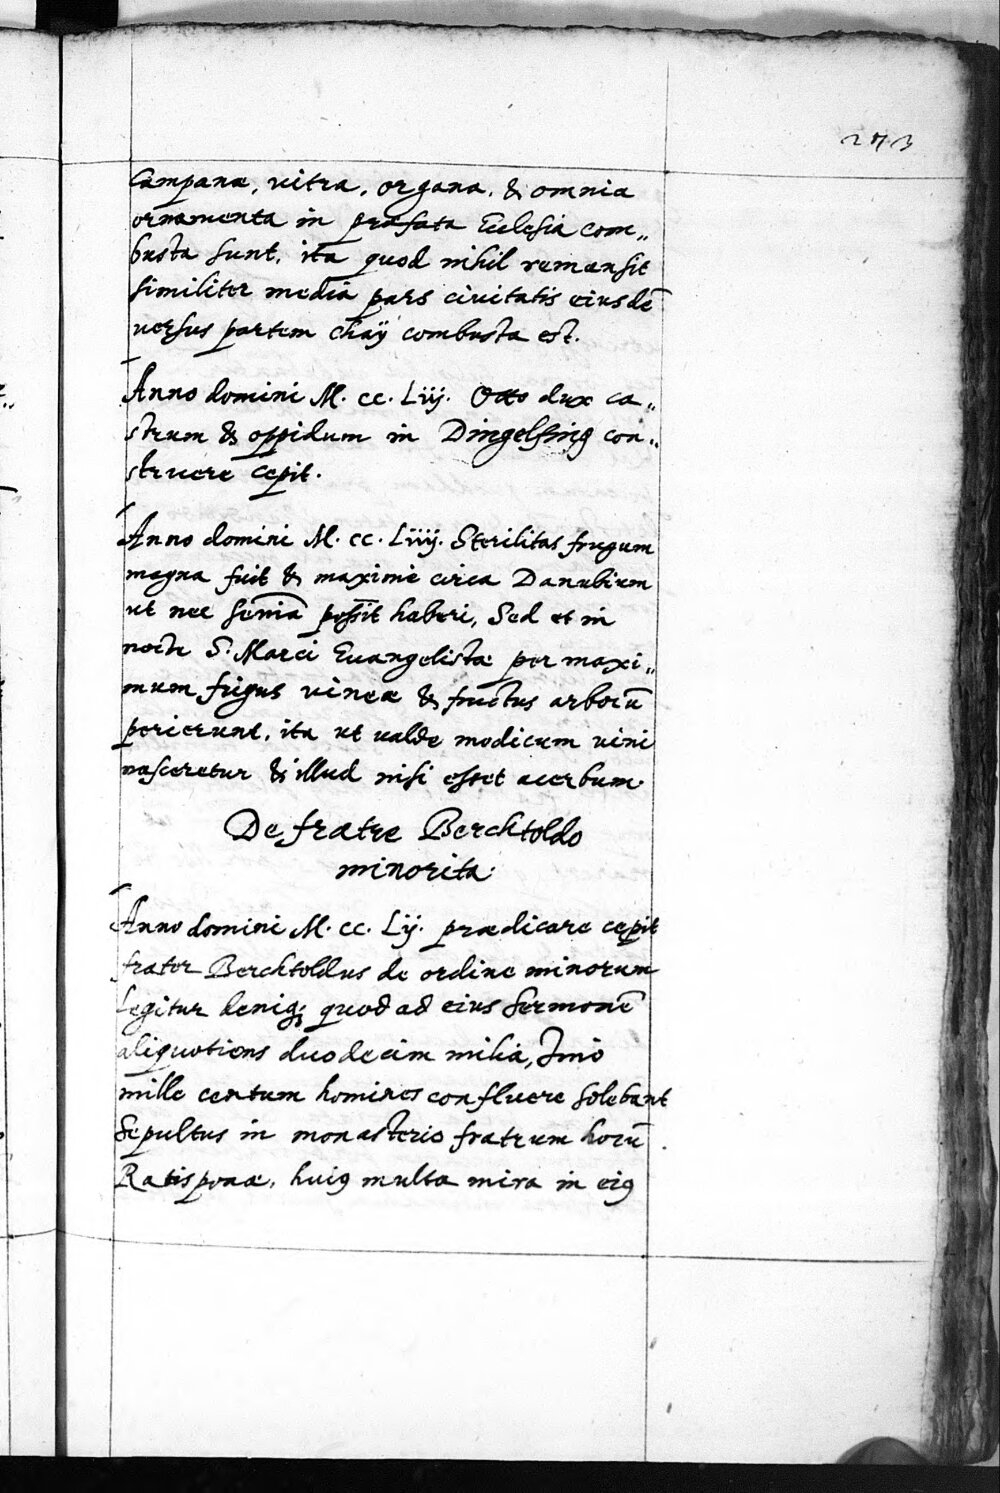 273
Campanæ, vitra, organa, & omnia
ornamenta in præfata Ecclesia com„
busta sunt, ita quod nihil remansit
similiter media pars civitatis eiusdē
versus partem chaÿ combusta est.
Anno domini M. cc. Liij. Otto dux ca„
strum & oppidum in Dingelfing con„
struere cepit.
Anno domini M. cc. Liiij. Sterilitas frugum
magna fuit & maxime circa Danubium
ut nec possit haberi, Sed et in
nocte S. Marci Euangelistæ per maxi„
mum frigus vineæ & fructus arborū
perierunt, ita ut valde modicum vini
nasceretur & illud nisi esset acerbum.
De fratre Berchtoldo
minorita.
Anno domini M. cc. Lij. prædicare cepit
frater Berchtoldus de ordine minorum
Legitur deniq; quod ad eius sermonē
aliquotiens duodecim milia, Imo
mille centum homines confluere solebant
Sepultus in monasterio fratrum horū
Ratisponæ, huiꝰ multa mira in eiꝰ